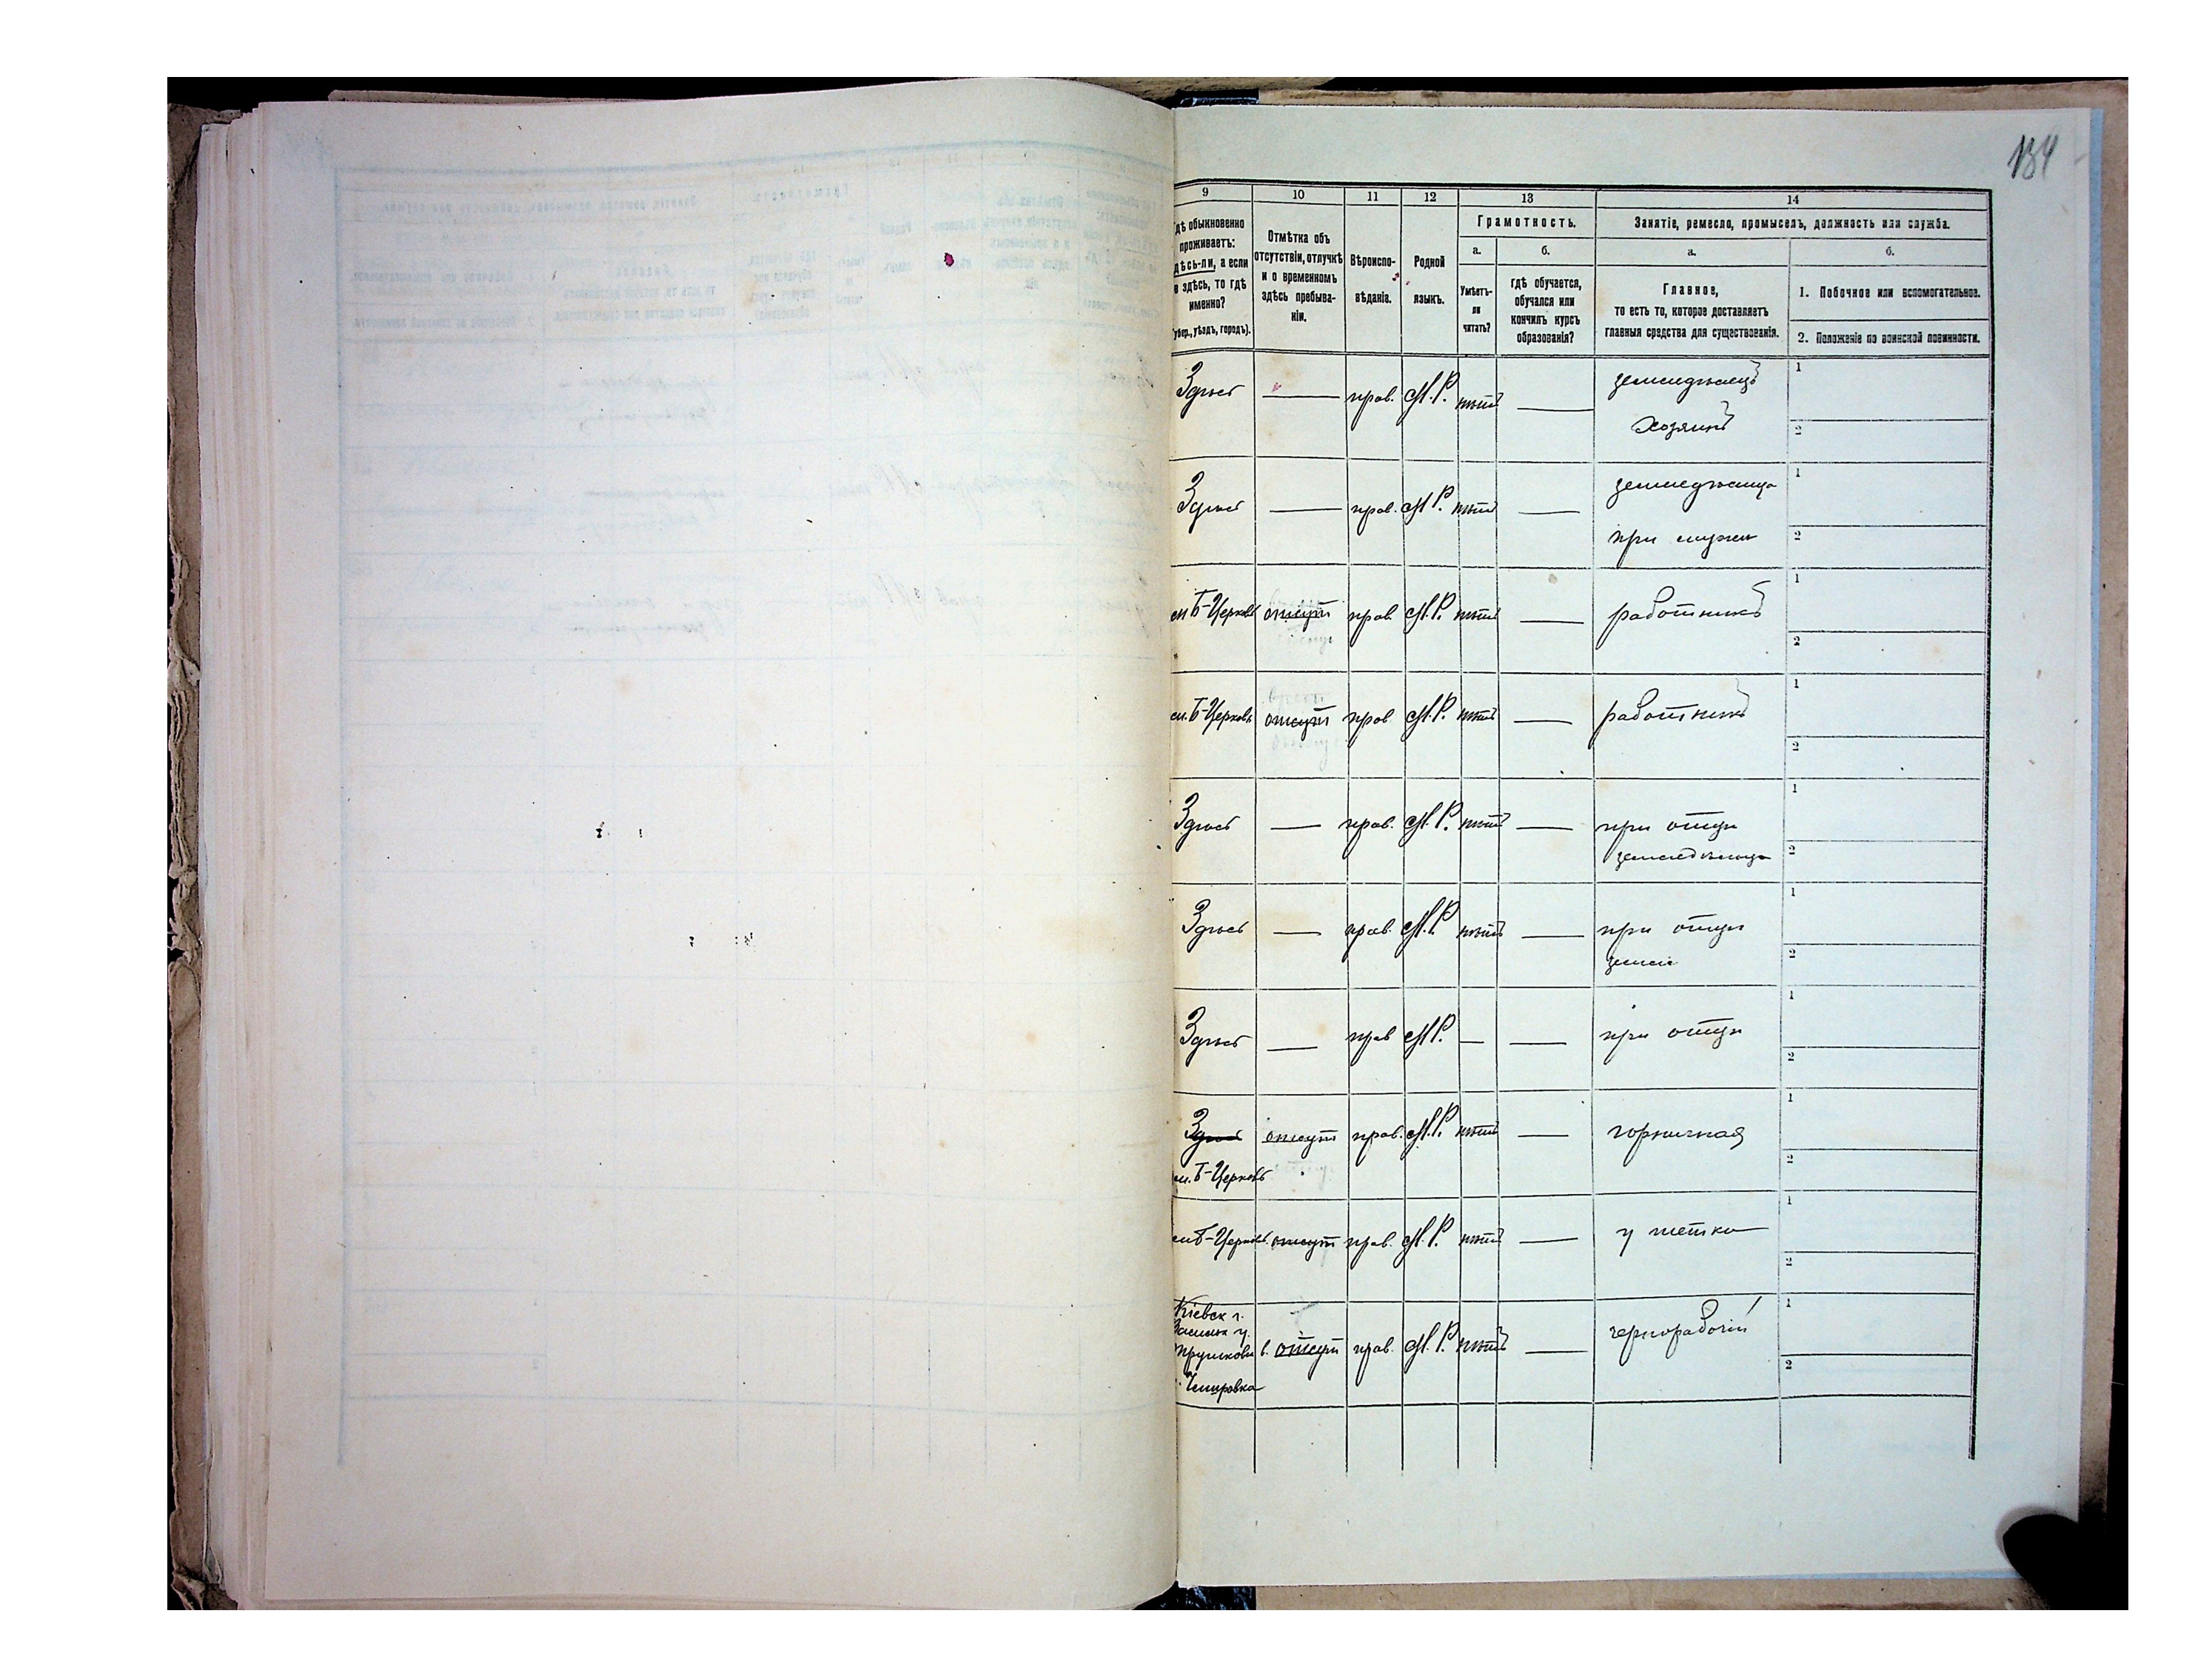 134
9 10 11 12 13 14
Гдѣ обыкновенно
проживаетъ:
здѣсь-ли, а если
не здѣсь, то гдѣ
именно?
(Губер., уѣздъ, городъ).
Отмѣтка объ
отсутствіи, отлучкѣ
и о временномъ
здѣсь пребыва-
ніи.
Вѣроиспо-
вѣданіе.
Родной
языкъ.
Грамотность.
а. б.
Умѣетъ-
ли
читать?
гдѣ обучается,
обучался или
кончилъ курсъ
образованія?
Занятіе, ремесло, промыселъ, должность или служба.
а. б.
Главное,
то есть то, которое доставляетъ
главныя средства для существованія.
1. Побочное или вспомогательное.
2. Положеніе по воинской повинности.
Здѣсь — прав. М.Р. нѣтъ — земледѣлецъ 1
хозяинъ 2
Здѣсь — прав. М.Р. нѣтъ — земледѣлица 1
при мужѣ 2
м. Б-Церковь отсут прав. М.Р. нѣтъ — работникъ 1
2
м. Б-Церковь отсут прав М.Р. нѣтъ — работникъ 1
2
Здѣсь — прав. М.Р. нѣтъ — при отцѣ 1
земледѣлица 2
Здѣсь — прав. М.Р. нѣтъ — при отцѣ 1
2
Здѣсь — прав М.Р. — — при отцѣ 1
2
Здѣсь отсут прав. М.Р. нѣтъ — горничная 1
м. Б-Церковь 2
м Б-Церковь отсут прав. М.Р. нѣтъ — у тетки 1
2
Кіевск г.
Васильк у.
в. отсут прав. М.Р. нѣтъ — чернорабочій 1
2